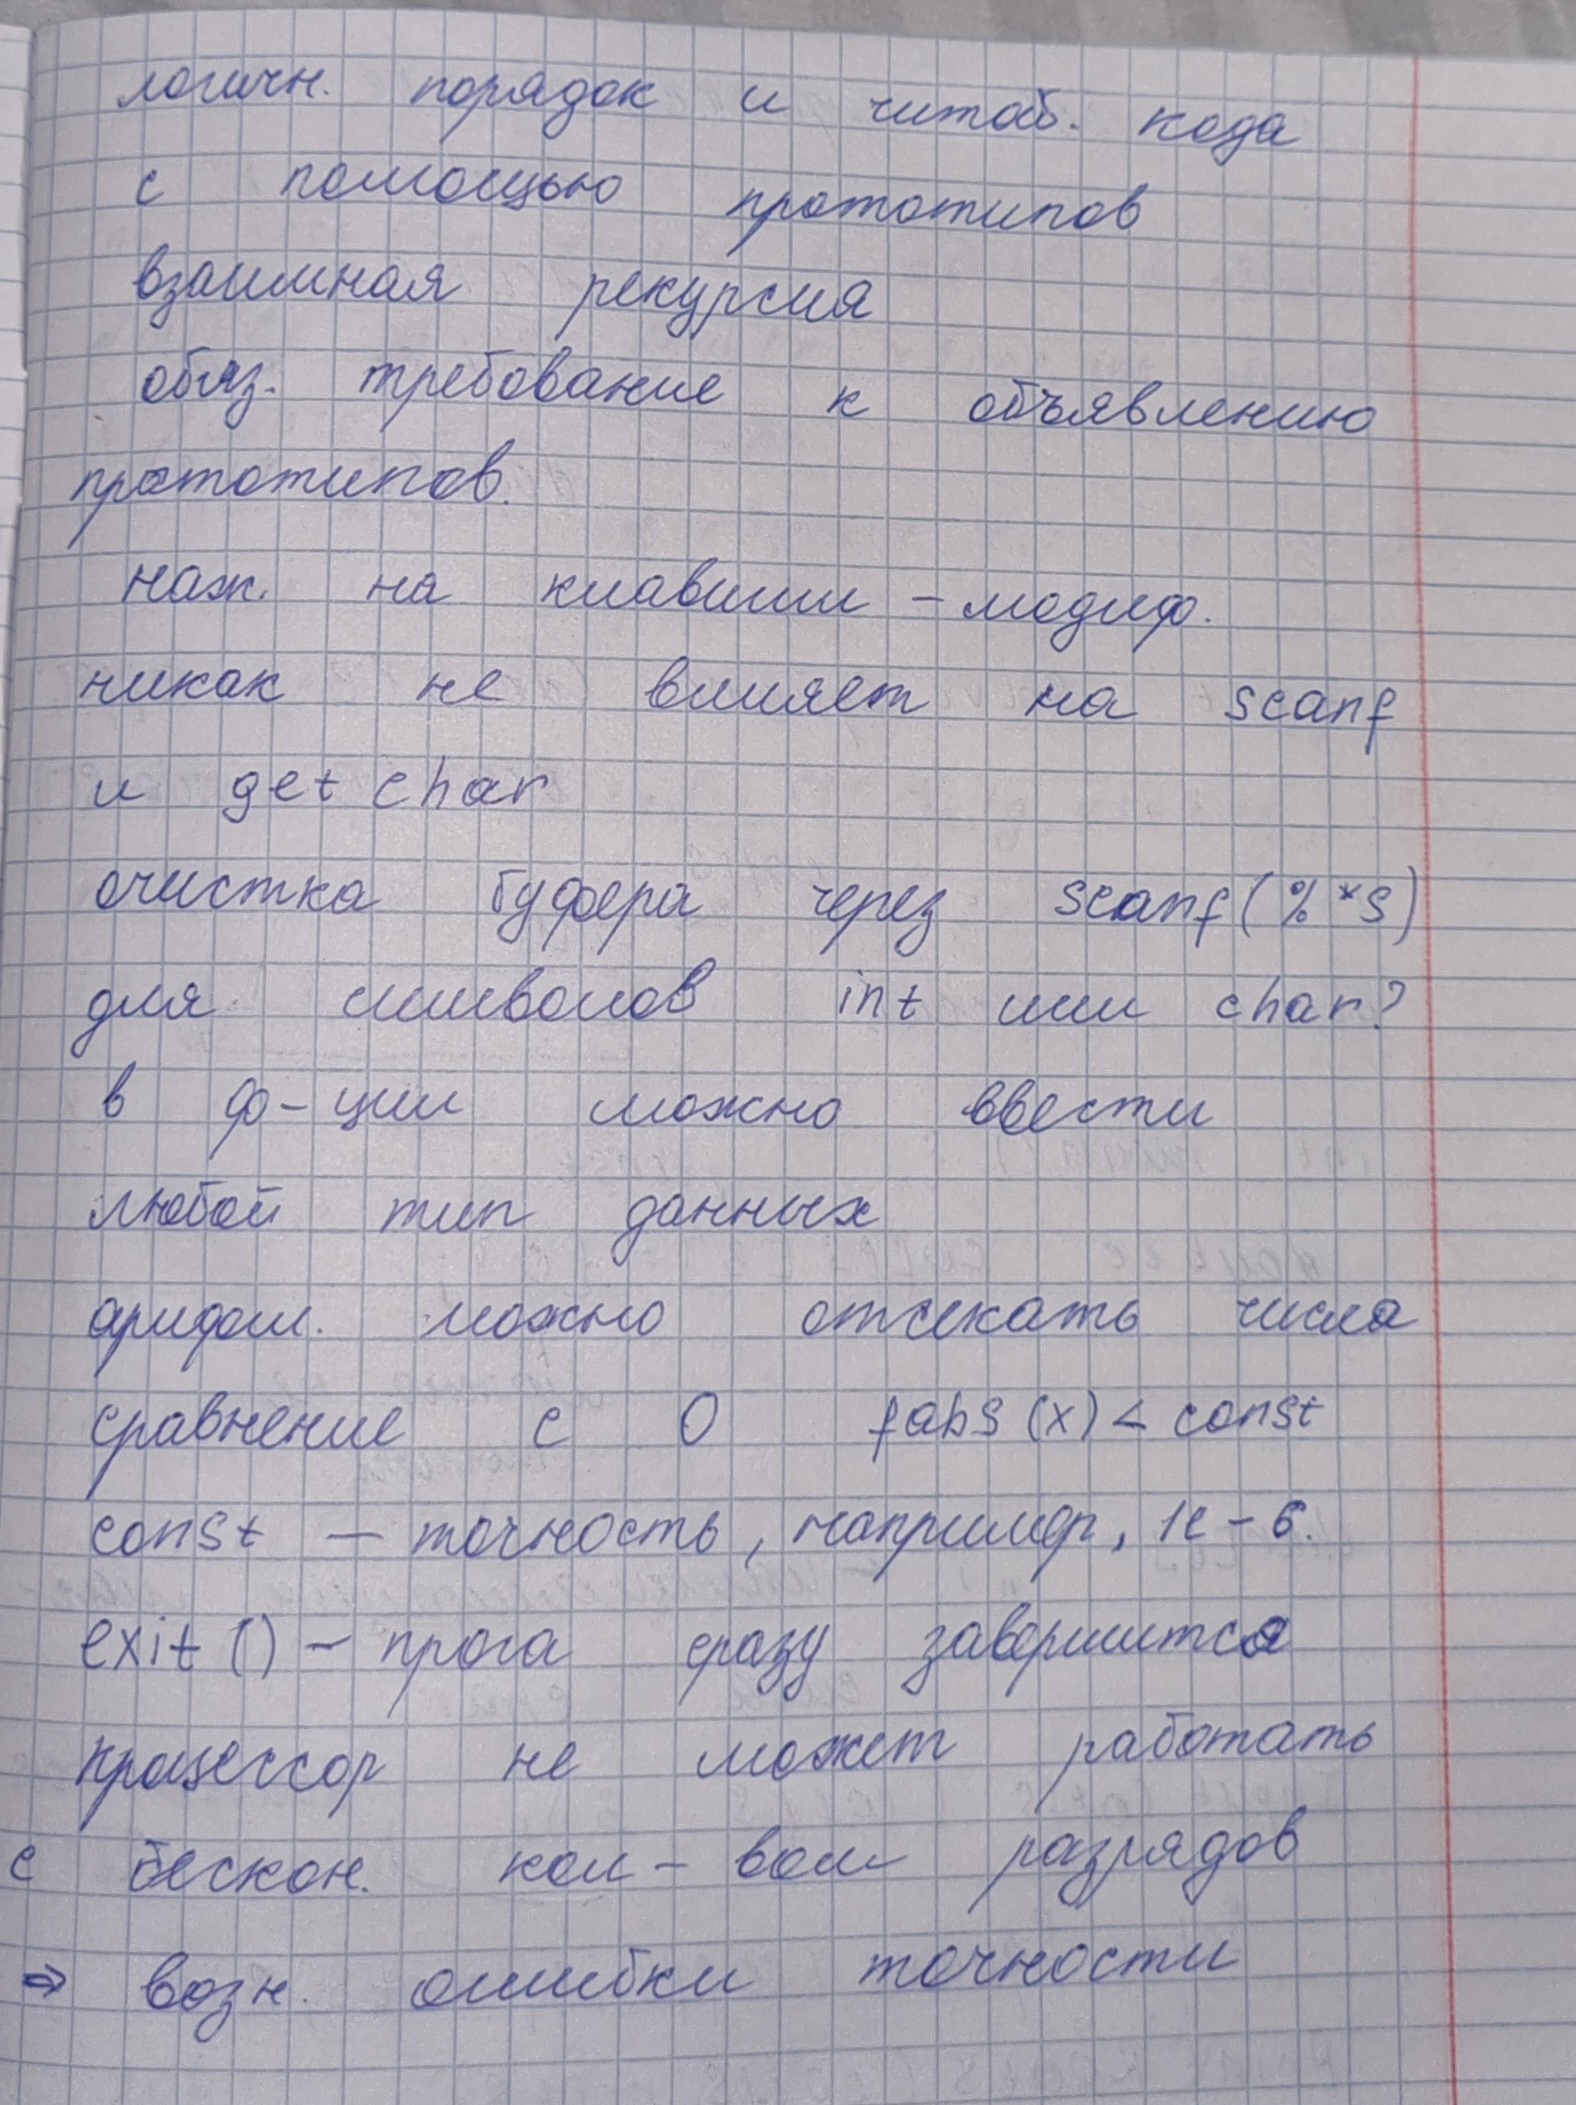 логичн. порядок и читаб. кода
с помощью прототипов
взаимная рекурсия
обяз. требование к объявлению
прототипов.
наж. на клавиши - модиф.
никак не влияет на scanf
и getchar
очистка буфера через scanf(%*s)
для символов int или char?
в ф-ции можно ввести
любой тип данных
можно отсекать числа
сравнение с 0 fabs(x) < const
const — точность, например, 1e-6.
exit() - прога сразу завершится
процессор не может работать
с бескон. кол-вом разрядов
⇒ возн. ошибки точности